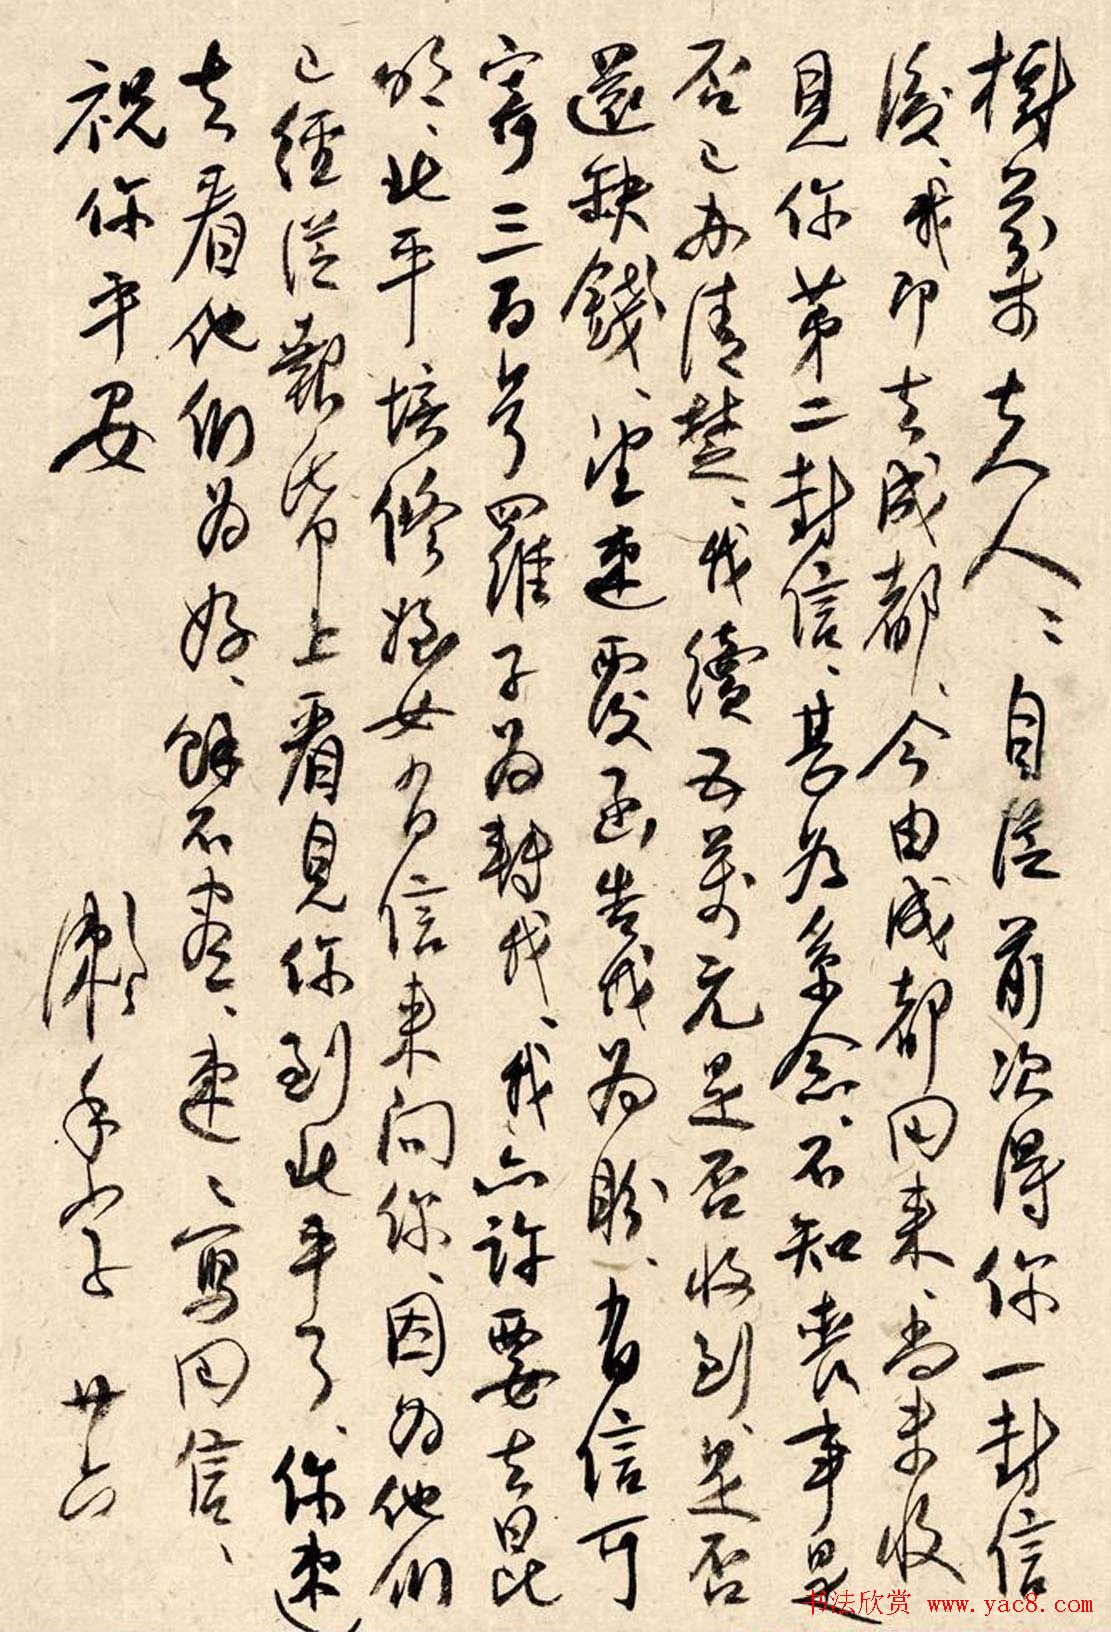 樹夫人：自從前次得你一封信
後、我即去成都、今由成都回來、尚未收
見你第二封信、甚為系念、不知喪事是
否已办清楚、我續五萬元是否收到、是否
還缺錢、望速覆函告我为盼、有信可
寄三百号羅子为轉我、我亦許要去昆
明、北平培修姪女有信来问你、因为他们
已經從報帋上看見你到北平了、你速
去看他们为好、餘不盡、速〻寫回信、
祝你平安
手字 廿六
书法欣赏 www.yac8.com